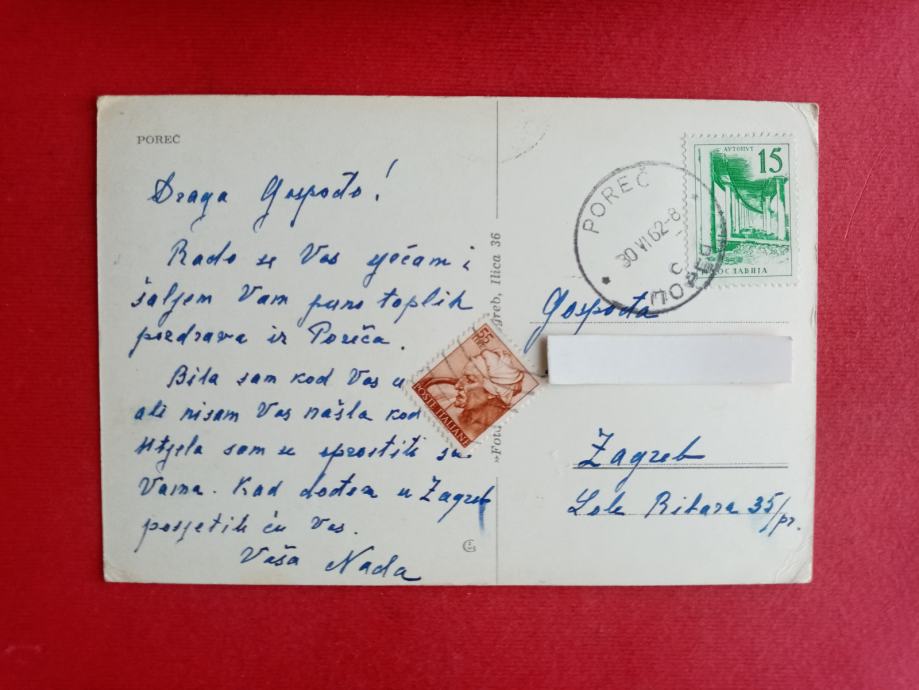 POREČ
Draga Gospođo!
Rado se Vas sjećam i
šaljem Vam puno toplih
pozdrava iz Poreča.
Bila sam kod Vas u
ali nisam Vas našla kod
Htjela sam se oprostiti sa
Vama. Kad dođem u Zagreb
posjetit ću Vas.
Vaša Nada
greb, Ilica 36
»Foto
55
POSTE ITALIANE
POREČ
30 VI 62-8
АУТОПУТ
15
ЈУГОСЛАВИЈА
Gospođa
Zagreb
Lole Ribara 35/pr.